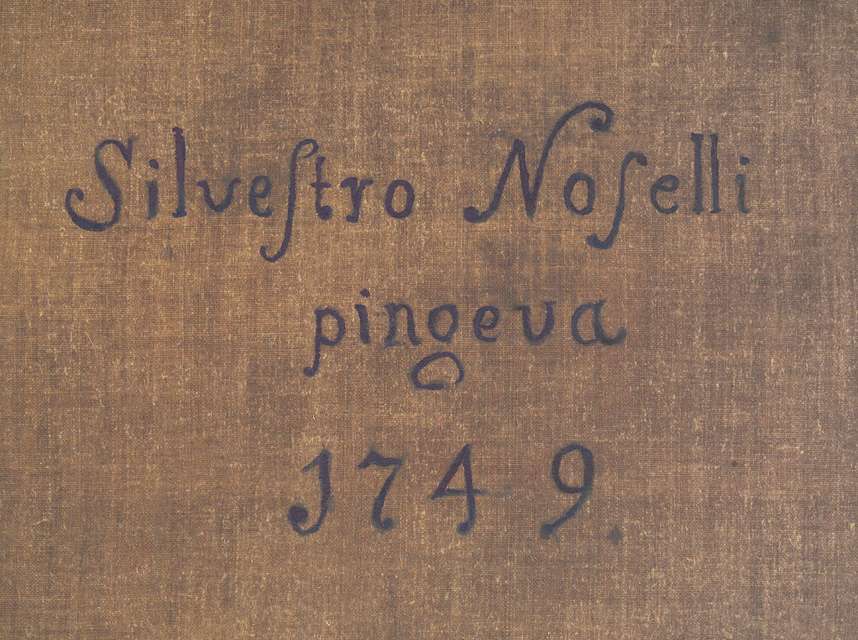 Silveſtro Noſelli
pingeva
1749.